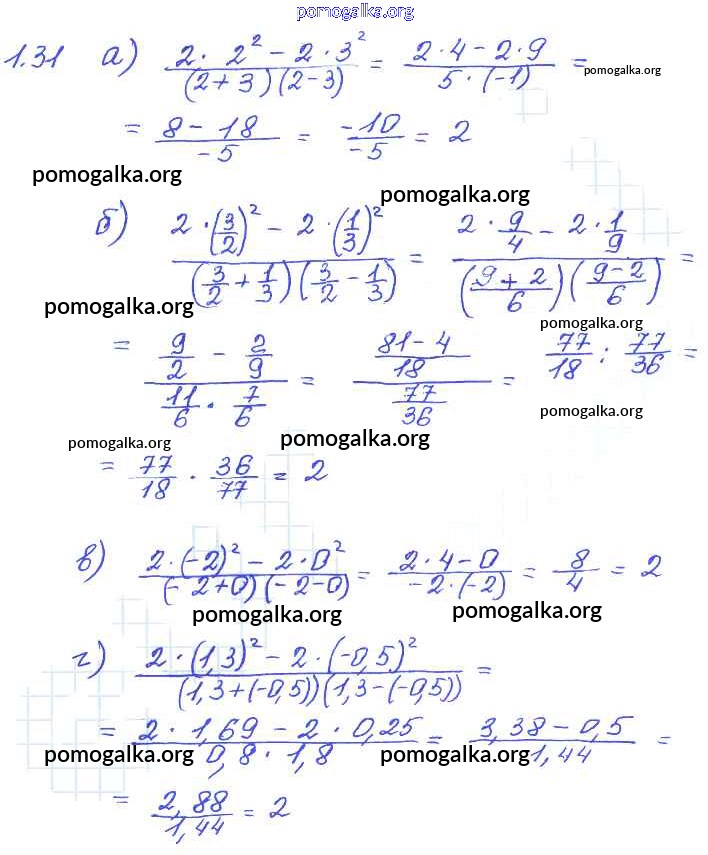 pomogalka.org
1.31 а) (2 · 2² − 2 · 3²)/((2+3)(2−3)) = (2·4 − 2·9)/(5·(−1)) =
pomogalka.org
= (8 − 18)/(−5) = (−10)/(−5) = 2
pomogalka.org
pomogalka.org
б) (2 · (3/2)² − 2 · (1/3)²)/((3/2 + 1/3)(3/2 − 1/3)) = (2 · 9/4 − 2 · 1/9)/(((9+2)/6)((9−2)/6)) =
pomogalka.org
pomogalka.org
= (9/2 − 2/9)/(11/6 · 7/6) = ((81−4)/18)/(77/36) = 77/18 : 77/36 =
pomogalka.org
pomogalka.org
pomogalka.org
= 77/18 · 36/77 = 2
в) (2·(−2)² − 2·0²)/((−2+0)(−2−0)) = (2·4 − 0)/(−2·(−2)) = 8/4 = 2
pomogalka.org
pomogalka.org
г) (2·(1,3)² − 2·(−0,5)²)/((1,3+(−0,5))(1,3−(−0,5))) =
= (2 · 1,69 − 2 · 0,25)/(0,8 · 1,8) = (3,38 − 0,5)/1,44 =
pomogalka.org
pomogalka.org
= 2,88/1,44 = 2